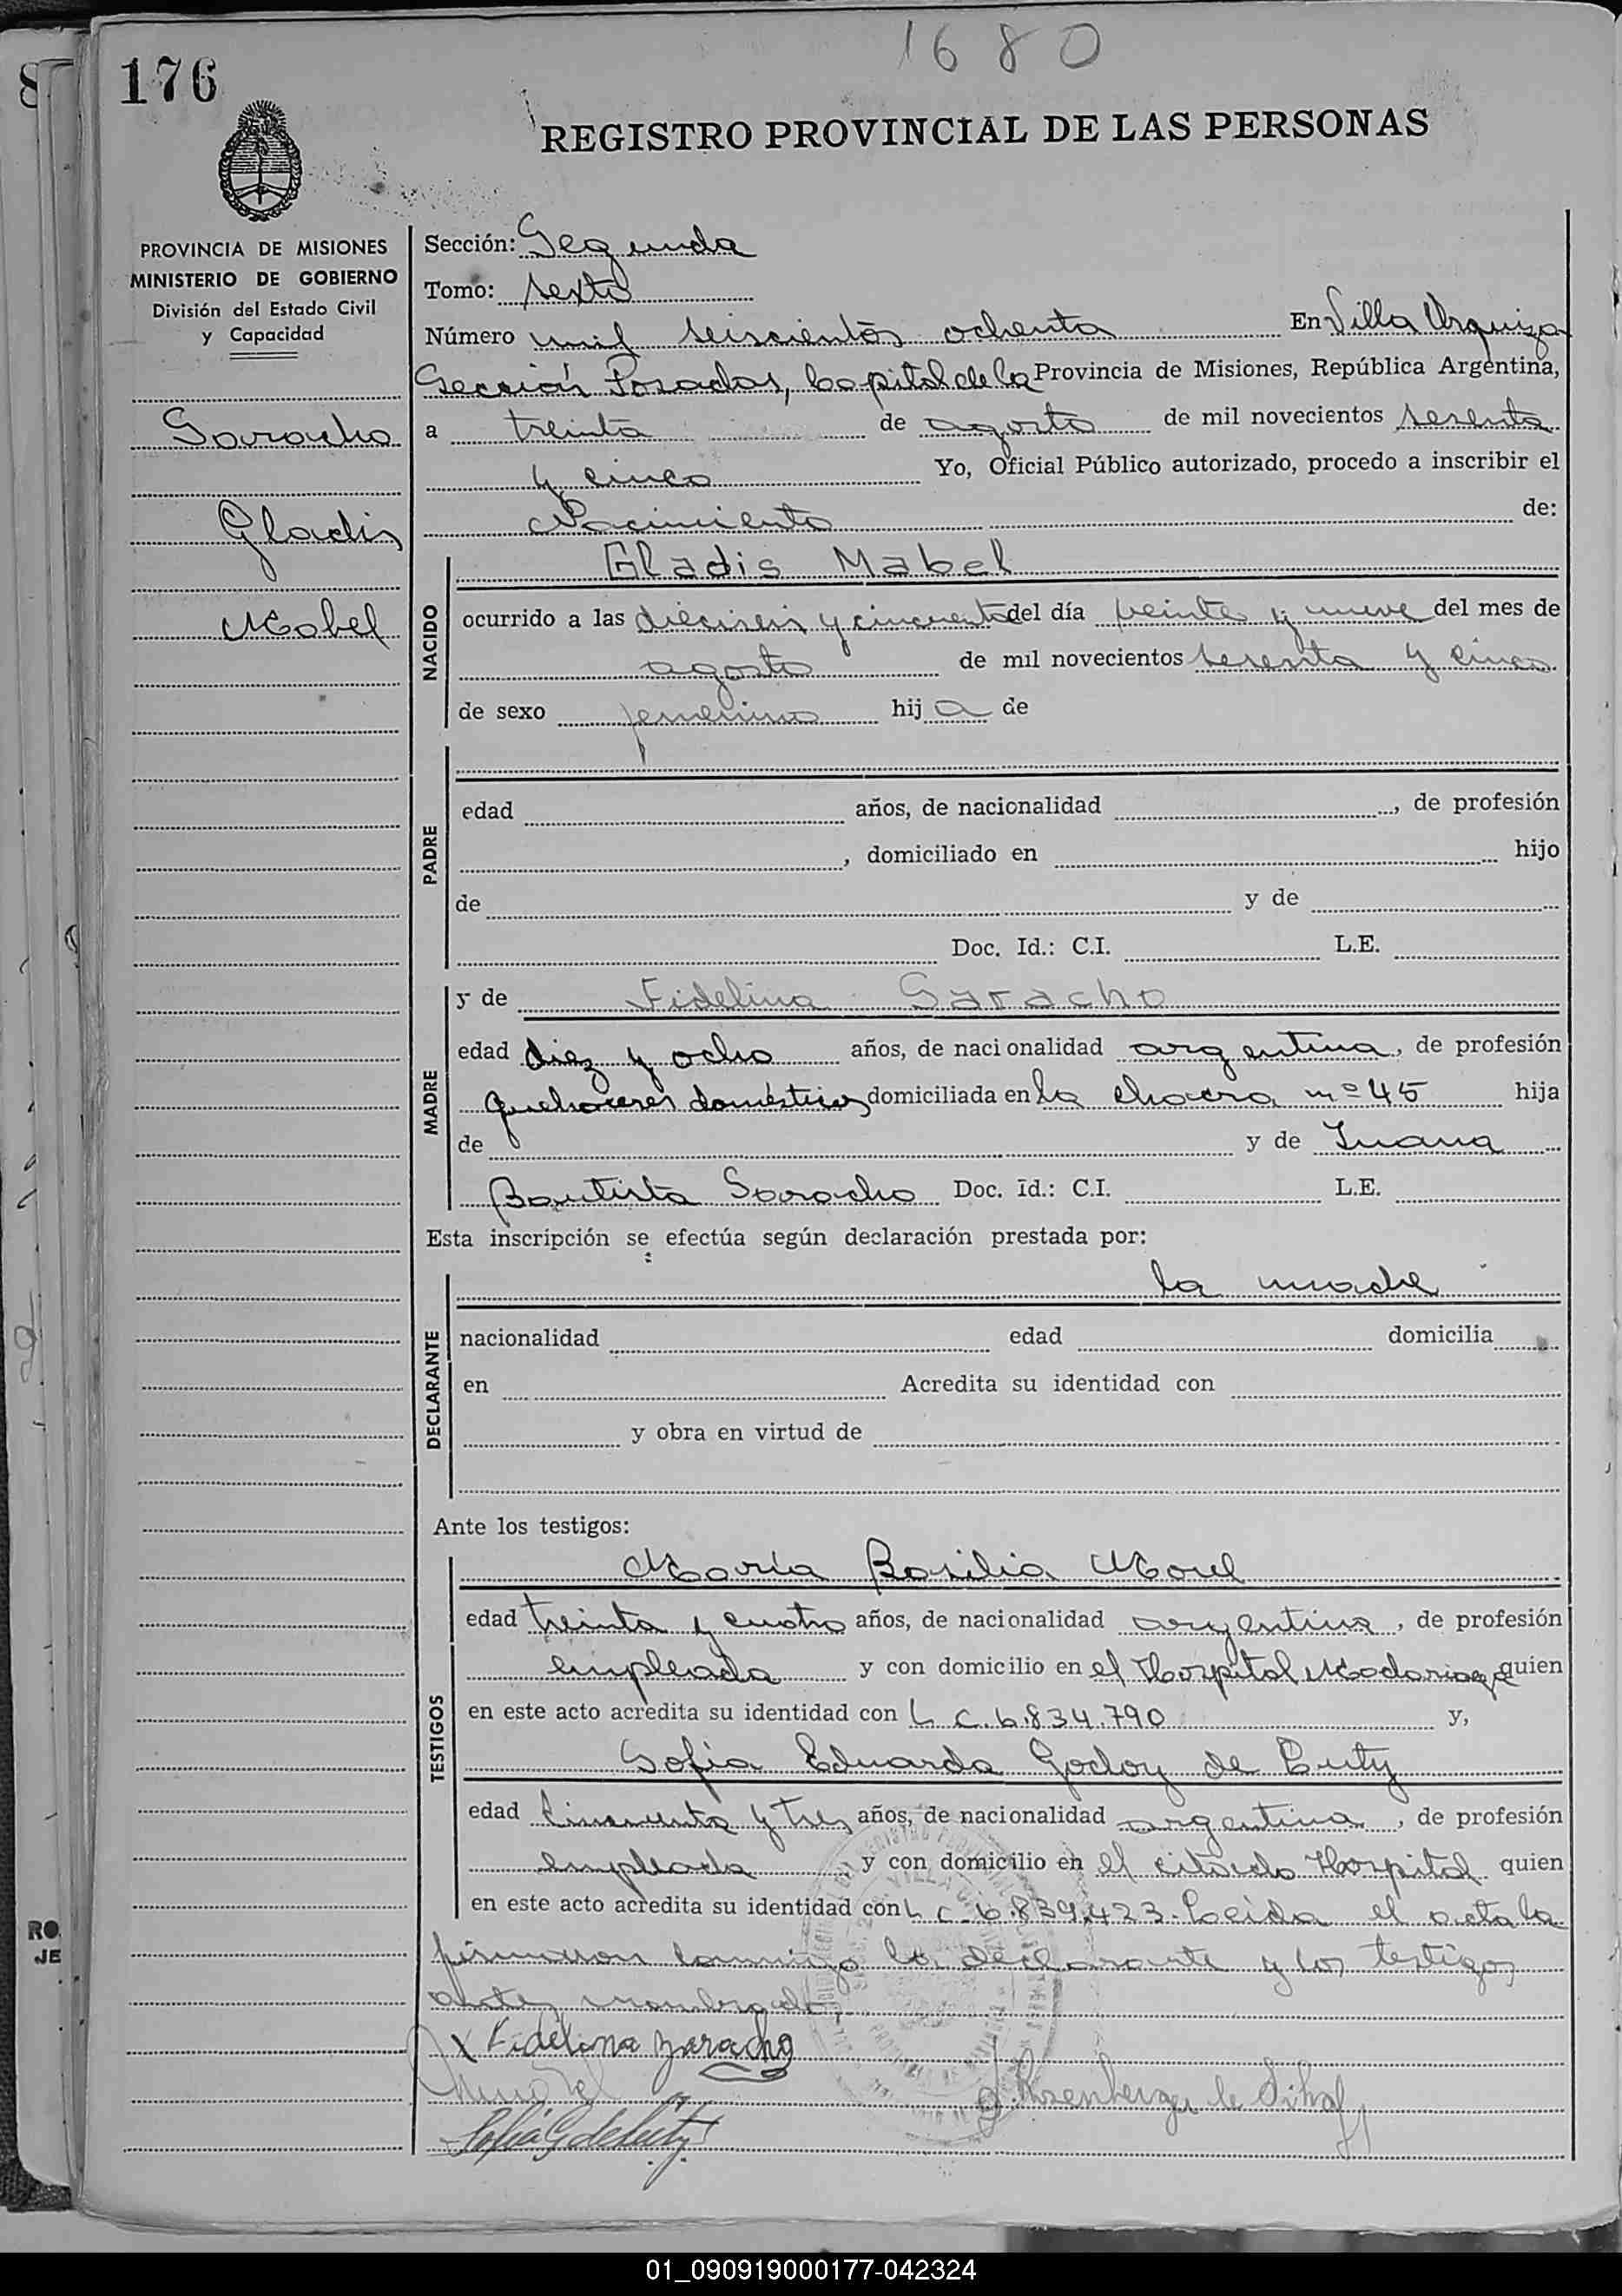 1680
176
REGISTRO PROVINCIAL DE LAS PERSONAS
PROVINCIA DE MISIONES
MINISTERIO DE GOBIERNO
División del Estado Civil
y Capacidad
Saracho
Gladis
Mabel
Sección: Segunda
Tomo: sexto
Número mil seiscientos ochenta En Villa Urquiza
Sección Posadas, Capital de la Provincia de Misiones, República Argentina,
a treinta de agosto de mil novecientos sesenta
y cinco Yo, Oficial Público autorizado, procedo a inscribir el
Nacimiento de:
NACIDO
Gladis Mabel
ocurrido a las dieciseis y cincuenta del día veinte y nueve del mes de
agosto de mil novecientos sesenta y cinco
de sexo femenino hija de
PADRE
edad años, de nacionalidad , de profesión
, domiciliado en hijo
de y de
Doc. Id.: C.I. L.E.
MADRE
y de Fidelina Saracho
edad diez y ocho años, de nacionalidad argentina, de profesión
quehaceres domésticos domiciliada en la chacra nº 45 hija
de y de Juana
Bautista Saracho Doc. Id.: C.I. L.E.
Esta inscripción se efectúa según declaración prestada por:
DECLARANTE
la madre
nacionalidad edad domicilia
en Acredita su identidad con
y obra en virtud de
Ante los testigos:
TESTIGOS
María Basilia Morel
edad treinta y cuatro años, de nacionalidad argentina, de profesión
empleada y con domicilio en el Hospital Madariaga quien
en este acto acredita su identidad con L C. 6.834.790 y,
Sofia Eduarda Godoy de Cuty
edad cincuenta y tres años, de nacionalidad argentina, de profesión
empleada y con domicilio en el citado Hospital quien
en este acto acredita su identidad con L C. 6.839.423. Leida el acta la
firmaron conmigo la declarante y los testigos
antes nombrados,
x Fidelina Zaracho
Rosenberger de Silva
Sofia G de Cuty
RO
JE
01_090919000177-042324